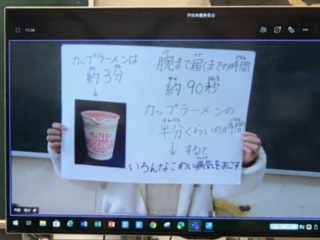 学校保健委員会
カップラーメンは
約3分
↓
腕まで届くまでの時間
約90秒
カップラーメンの
半分くらいの時間
↓ すると
いろんなこわい病気をおこす
CUP
NOODLE